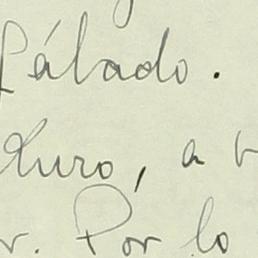 Sábado.
duro, a
r. Por lo